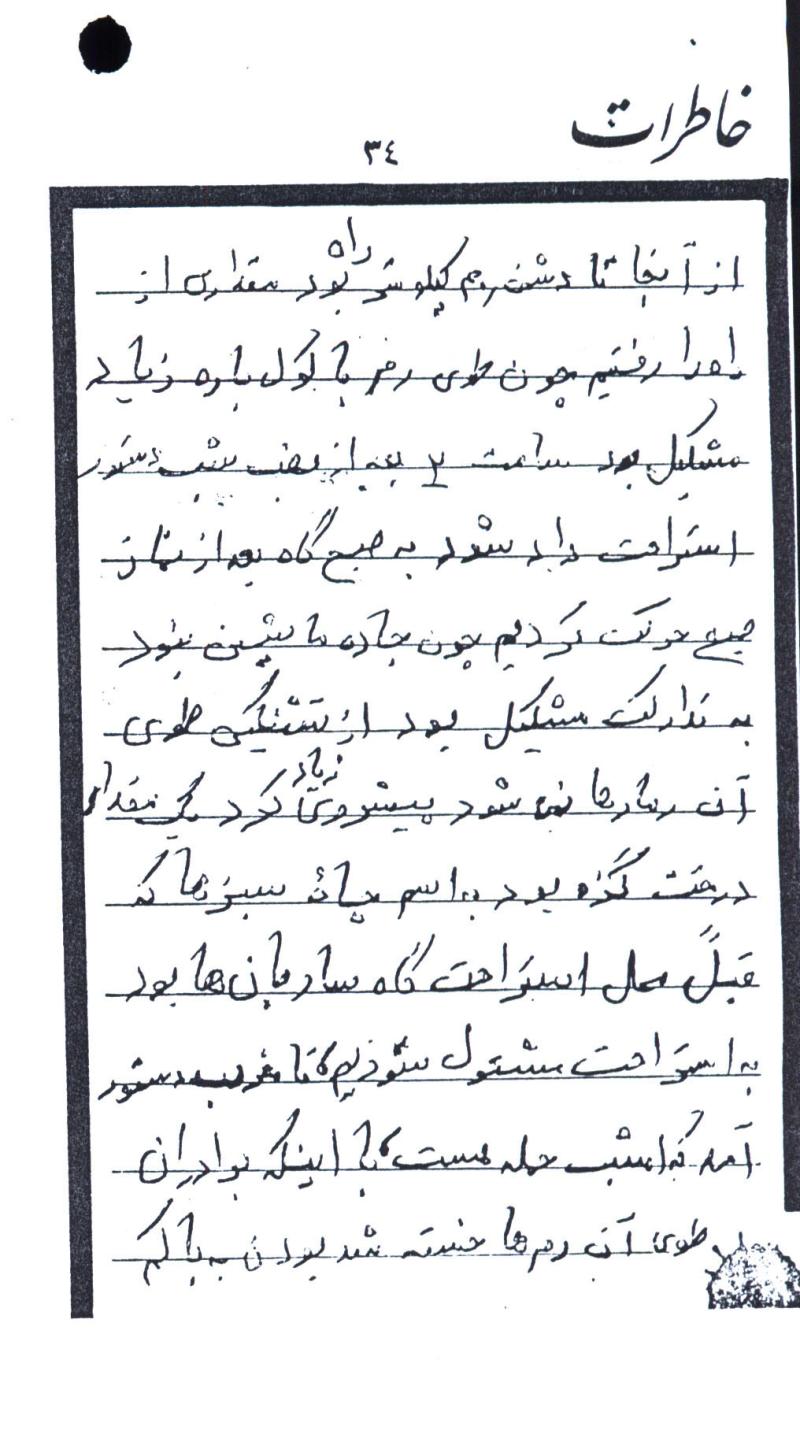 خاطرات
٣٤
از آنجا تا دشت رم کیلومتر راه بود مقداری از
راه را رفتیم چون طوی رمر با کول باره زیاد
مشکل بود ساعت ۲ بعد از نصف شب دستور
استراحت داد شود به صبح گاه بعد از نماز
صبح حرکت کردیم چون جاده ماشین نبود
به تدارکت مشکل بود از تشنگی طوی
آن رمارها نمی شود پیشروی زیاد کرد یک مقدار
درخت گزه بود به اسم چانه سبزها که
قبلاً محل استراحت گاه سازمان ها بود
به استراحت مشتول شودیم تا غرب دستور
آمد که امشب حمله هست با اینکه برادران
طوی آن رم ها خسته شد بودن به با کم